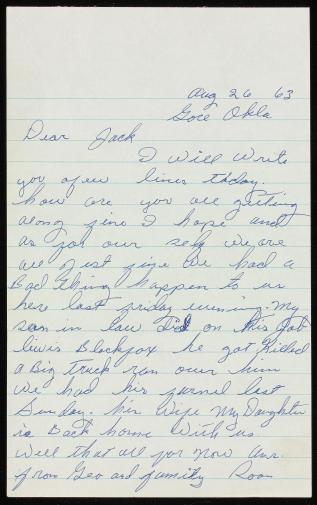 Aug 26 63
Gore Okla
Dear Jack
I will write
you afew lines today.
how are you all getting
along fine I hope and
as for our self we are
all Just fine we had a
Bad thing happen to us
here last friday evening. My
son in law Did on this Job
lewis Blackfox he got Killed
a Big truck ran over him
we had his funel last
Sunday. his Wife My Daughter
is Back home With us
Well that all for Now Ans.
from Geo and family Soon